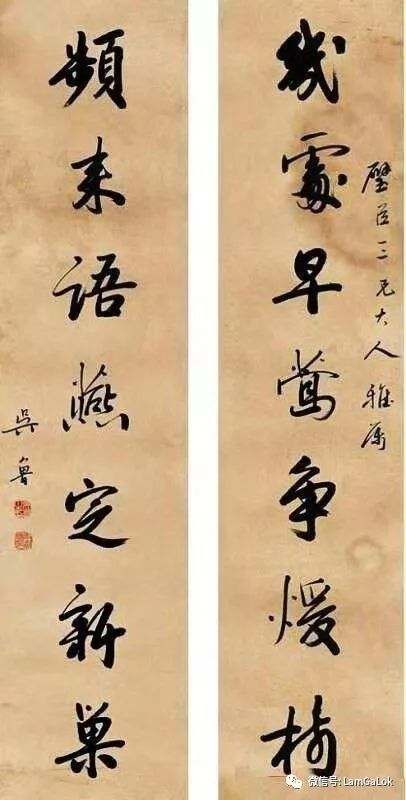 璧臣三兄大人雅属
幾處早鶯争煖樹
頻来語燕定新巢
吳魯
微信号: LamGaLok